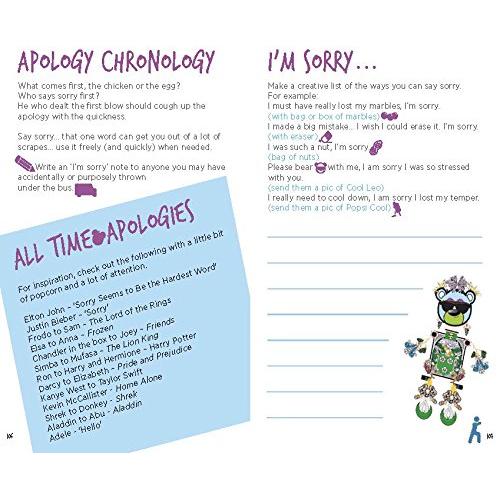 APOLOGY CHRONOLOGY
What comes first, the chicken or the egg?
Who says sorry first?
He who dealt the first blow should cough up the
apology with the quickness.
Say sorry... that one word can get you out of a lot of
scrapes... use it freely (and quickly) when needed.
Write an 'I'm sorry' note to anyone you may have
accidentally or purposely thrown
under the bus.
ALL TIME APOLOGIES
For inspiration, check out the following with a little bit
of popcorn and a lot of attention.
Elton John - 'Sorry Seems to Be the Hardest Word'
Justin Bieber - 'Sorry'
Frodo to Sam - The Lord of the Rings
Elsa to Anna - Frozen
Chandler in the box to Joey - Friends
Simba to Mufasa - The Lion King
Ron to Harry and Hermione - Harry Potter
Darcy to Elizabeth - Pride and Prejudice
Kanye West to Taylor Swift
Kevin McCallister - Home Alone
Shrek to Donkey - Shrek
Aladdin to Abu - Aladdin
Adele - 'Hello'
I'M SORRY...
Make a creative list of the ways you can say sorry.
For example:
I must have really lost my marbles, I'm sorry.
(with bag or box of marbles)
I made a big mistake... I wish I could erase it. I'm sorry.
(with eraser)
I was such a nut, I'm sorry
(bag of nuts)
Please bear with me, I am sorry I was so stressed
with you.
(send them a pic of Cool Leo)
I really need to cool down, I am sorry I lost my temper.
(send them a pic of Popsi Cool)